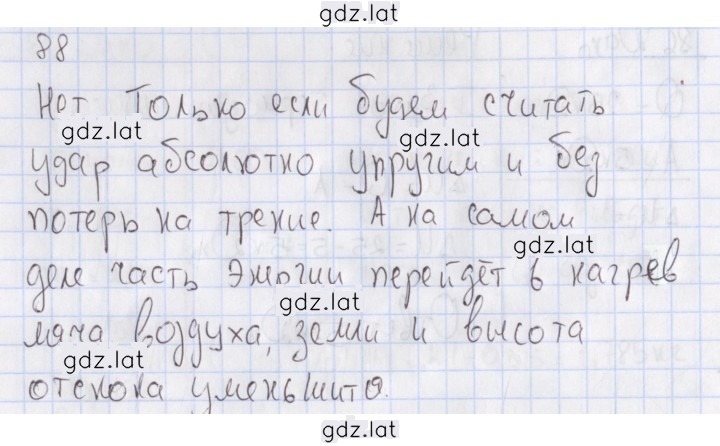 gdz.lat
88
Нет Только если будем считать
gdz.lat
gdz.lat
удар абсолютно упругим и без
потерь на трение. А на самом
gdz.lat
деле часть Энергии перейдёт в нагрев
gdz.lat
мяча воздуха, земли и высота
gdz.lat
отскока уменьшится.
gdz.lat